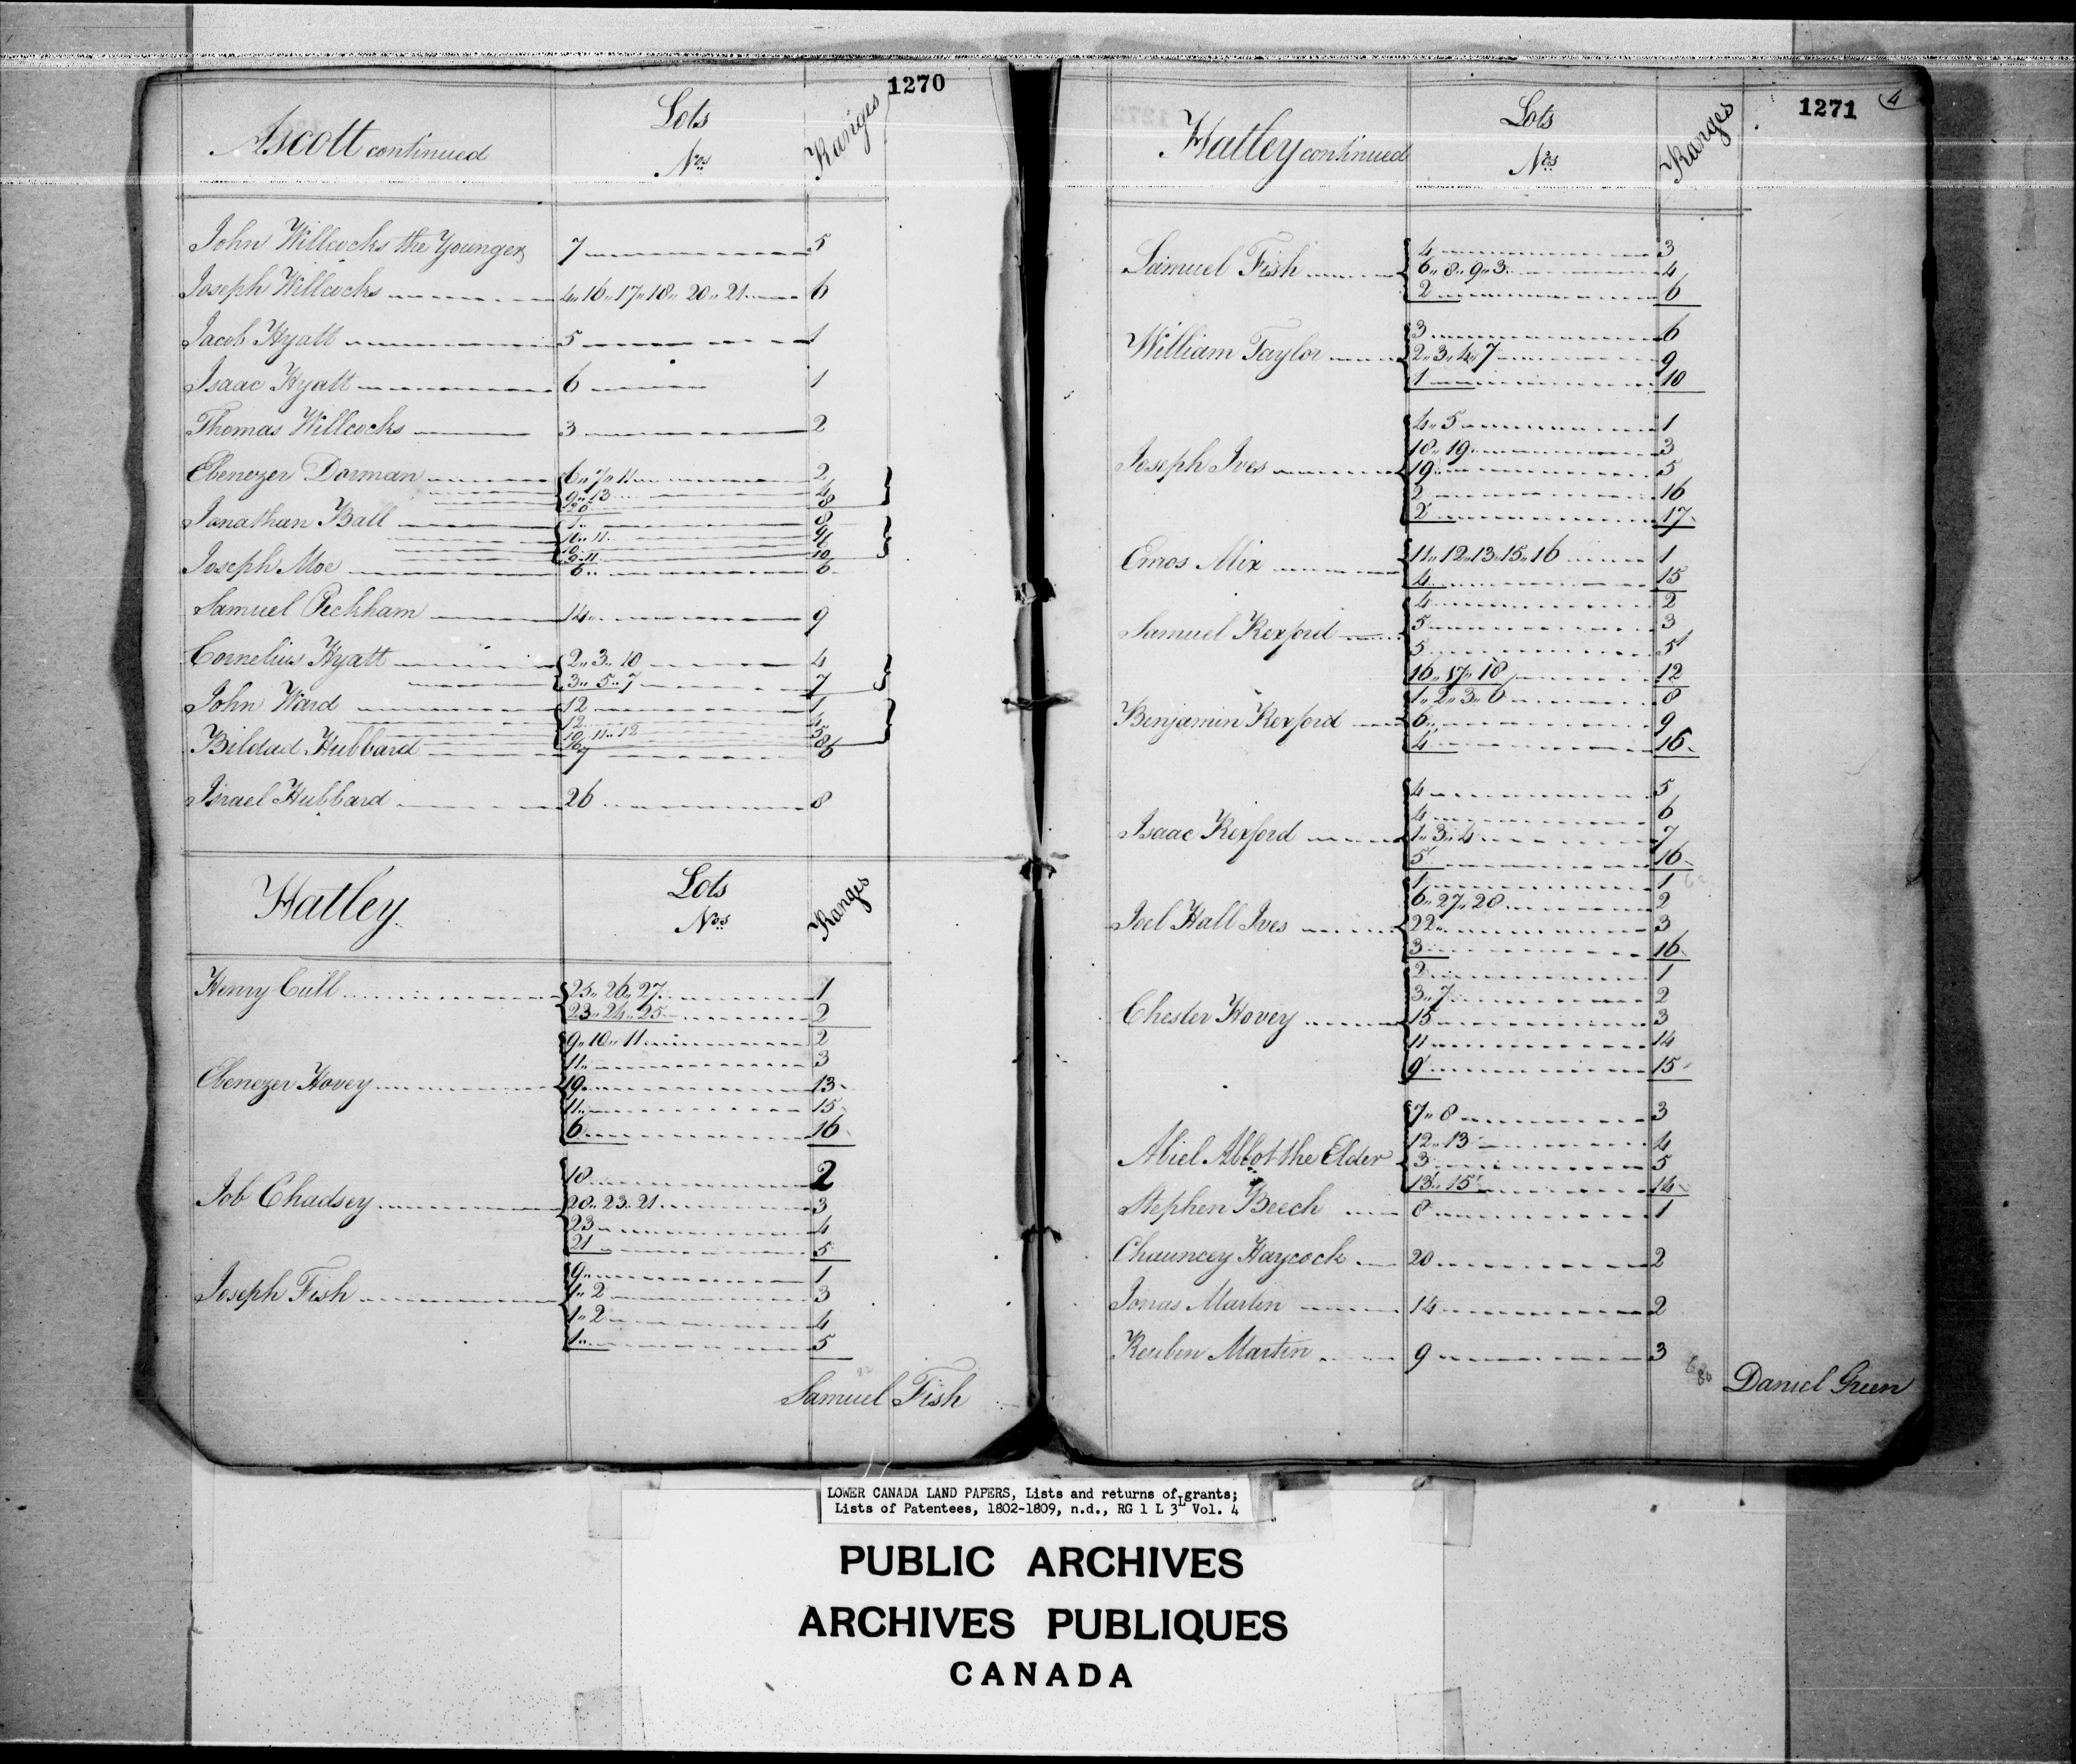 1270
Ascott continued Lots Nos. Ranges
John Willcocks the Younger 7 5
Joseph Willcocks 4,, 16,, 17,, 18,, 20,, 21 6
Jacob Hyatt 5 1
Isaac Hyatt 6 1
Thomas Willcocks 3 2
Ebenezer Dorman 6,, 7,, 11 2
9,, 13 4
8
Jonathan Ball 1 8
10,, 11 9
9,, 11 10
Joseph Moe 6 6
Samuel Peckham 14 9
Cornelius Hyatt 2,, 3,, 10 4
3,, 5,, 7 7
John Ward 12 1
12 4
10,, 11,, 12 5
Bildad Hubbard 7 6
Israel Hubbard 26 8
Hatley Lots Nos. Ranges
Henry Cull 25,, 26,, 27 1
23,, 24,, 25 2
9,, 10,, 11 2
11 3
Ebenezer Hovey 19 13
11 15
6 16
18 2
Job Chadsey 20,, 23,, 21 3
23 4
21 5
9 1
Joseph Fish 1,, 2 3
1,, 2 4
1 5
Samuel Fish
1271
4
Hatley continued Lots Nos. Ranges
4 3
Samuel Fish 6,, 8,, 9,, 3 4
2 6
3 6
William Taylor 2,, 3,, 4,, 7 9
1 10
4,, 5 1
18,, 19 3
Joseph Ives 19 5
2 16
2 17
Emos Mix 11,, 12,, 13,, 15,, 16 1
4 15
4 2
Samuel Rexford 5 3
5 5
16,, 17,, 18 12
1,, 2,, 3,, 6 8
Benjamin Rexford 6 9
4 16
4 5
4 6
Isaac Rexford 1,, 3,, 4 7
5 16
1 1
6,, 27,, 28 2
Joel Hall Ives 22 3
3 16
2 1
3,, 7 2
Chester Hovey 15 3
11 14
9 15
7,, 8 3
12,, 13 4
Abiel Abbot the Elder 3 5
13,, 15 14
Stephen Beech 8 1
Chauncey Haycock 20 2
Jonas Martin 14 2
Reuben Martin 9 3
Daniel Green
LOWER CANADA LAND PAPERS, Lists and returns of grants;
Lists of Patentees, 1802-1809, n.d., RG 1 L 3L Vol. 4
PUBLIC ARCHIVES
ARCHIVES PUBLIQUES
CANADA